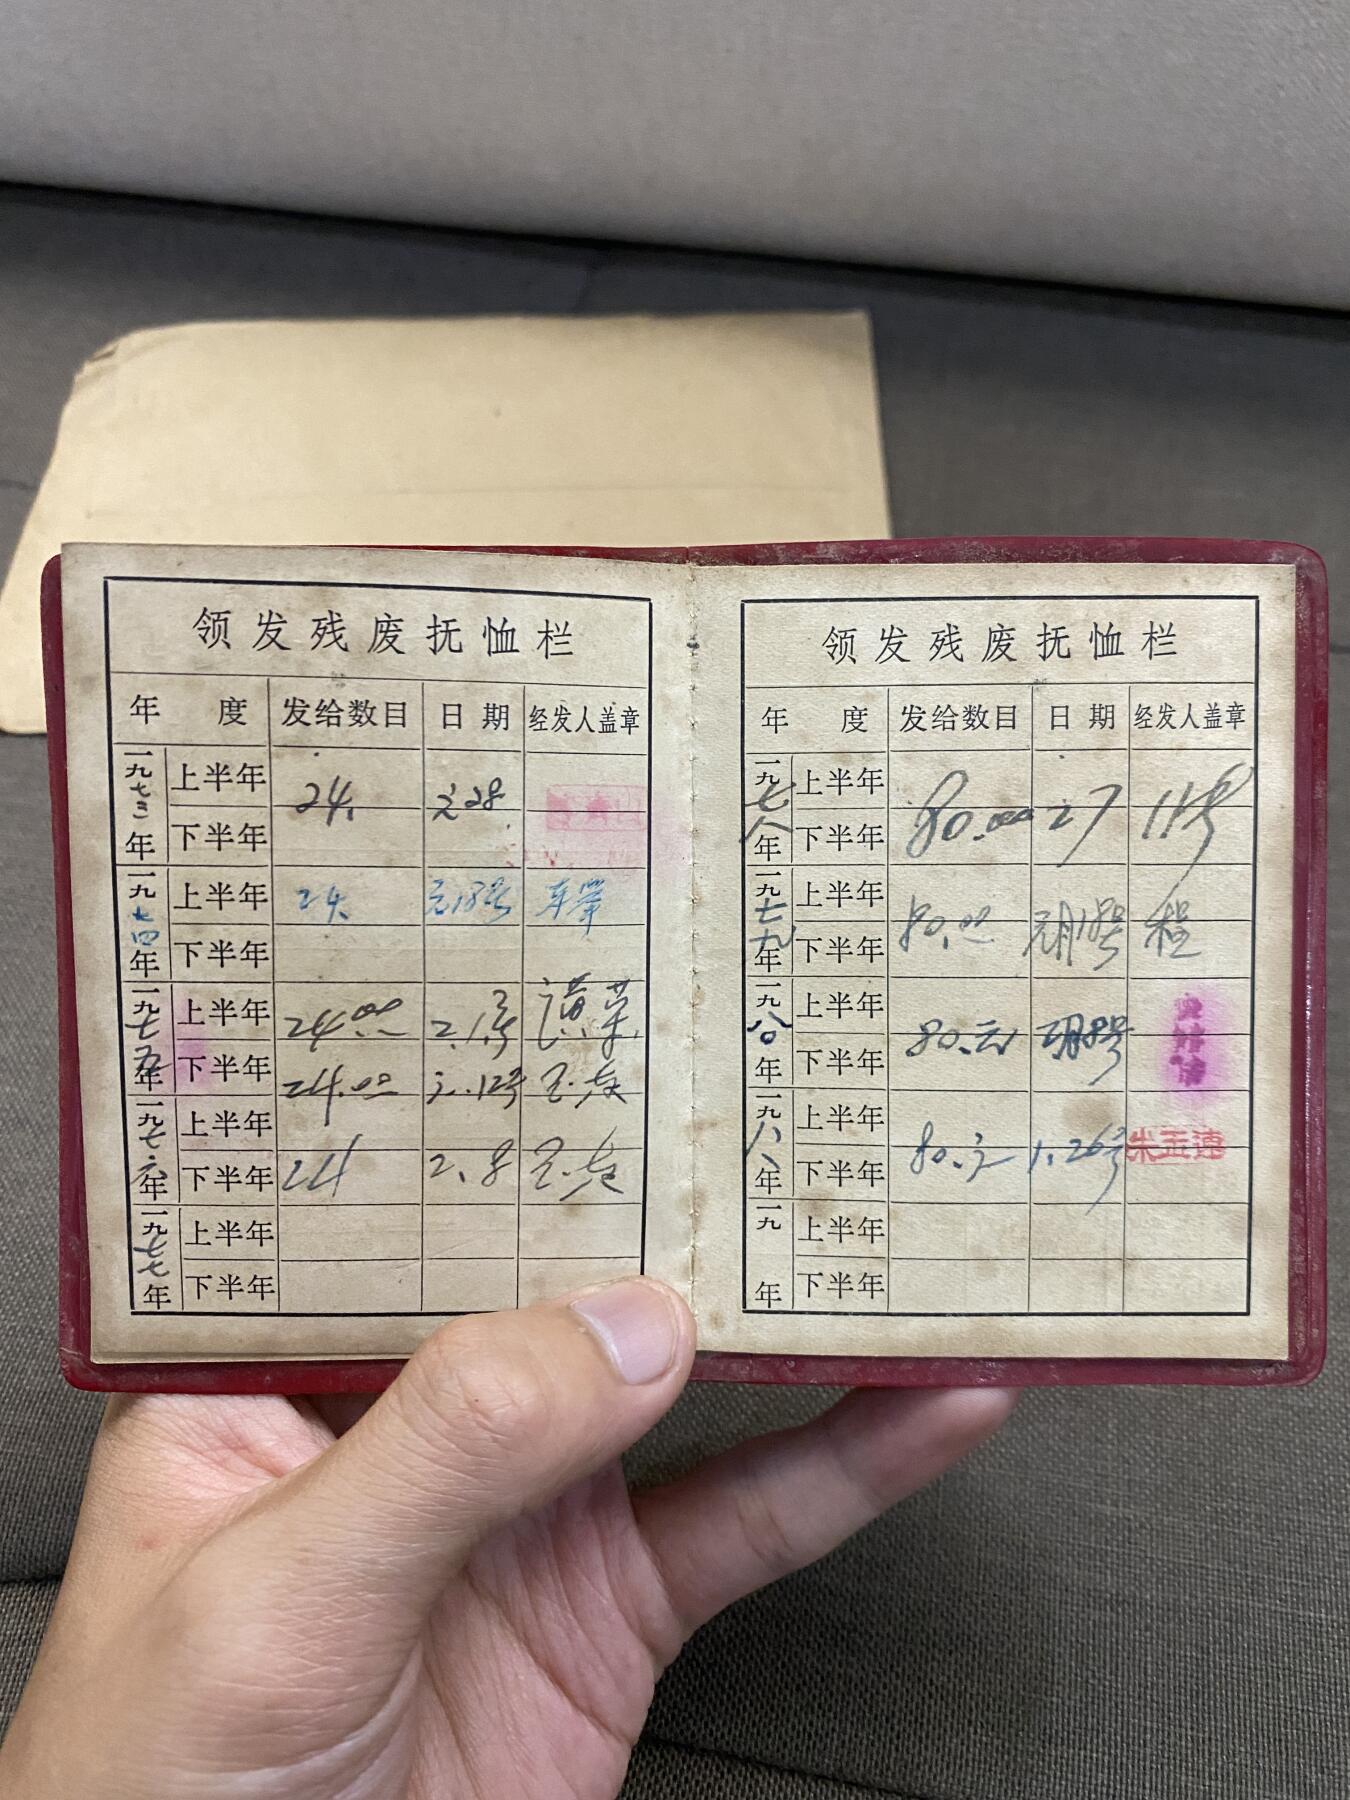 领发残废抚恤栏
年度 发给数目 日期 经发人盖章
一九七三年 上半年 24. 元28
下半年
一九七四年 上半年 24. 元18号
下半年
一九七五年 上半年 24.00 2.1号
下半年 24.00 元.12号
一九七六年 上半年
下半年 24 2.8
一九七七年 上半年
下半年
领发残废抚恤栏
年度 发给数目 日期 经发人盖章
一九七八年 上半年 80.000 27 11号
下半年
一九七九年 上半年
下半年 80.00 元月18号 程
一九八〇年 上半年
下半年 80.元
一九八八年 上半年
下半年 80.元 1.26号 朱玉连
一九 年 上半年
下半年